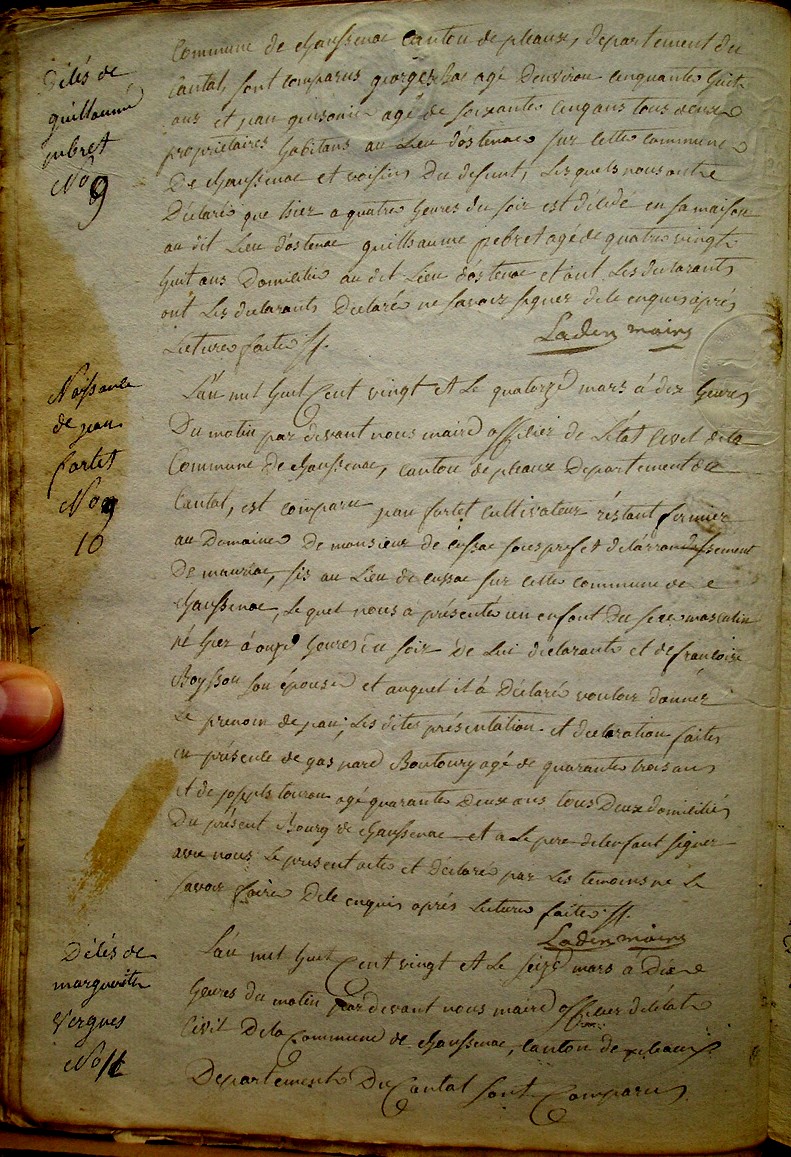 Décès de
guillaume
pebret
No 9
commune de chaussenac canton de pleaux, departement du
Cantal, sont comparus georges bac agé denviron cinquante huit
ans et jean agé de soixante cinq ans tous deux
propriétaires habitans au Lieu d'ostenac sur cette commune
De chaussenac et voisins du defunt, Lesquels nous ont
Déclaré que hier a quatre heures du soir est décédé en sa maison
au dit Lieu d'ostenac guillaume pebret agé de quatre vingt
huit ans Domicilié au dit Lieu d'ostenac et ont Les déclarants
ont Les déclarants Déclaré ne savoir signer de ce enquis aprés
Lecture faite //.
Ladenmains
Naissance
de jean
fortet
No 9
10
L'an mil huit Cent vingt et Le quatorze mars à dix heures
Du matin par devant nous maire officier de L'état civil de la
Commune de chaussenac, canton de pleaux Departement du
Cantal, est comparu jean fortet cultivateur réstant fermier
au Domaine De monsieur de cussac sousprefet de l'arrondissement
De mauriac, sis au Lieu de cussac sur cette commune de
chaussenac, Lequel nous a présenté un enfant du sexe masculin
né hier à onze heures du soir De Lui déclarant et de francoise
Boysson son épouse et auquel il à Déclaré vouloir donner
Le prenom de jean; Les dites présentation et declaration faites
en présence de gaspard Boutoury agé de quarante trois ans
et de joseph touron agé quarante Deux ans tous Deux domiciliés
Du présent Bourg de chaussenac et a Le pere de lenfant signer
avec nous Le present acte et déclaré par Les temoins ne Le
savoir faire De ce enquis aprés Lecture faite //.
Ladenmains
Décés de
marguerite
Vergnes
No 11
L'an mil huit Cent vingt et Le seize mars à Dix
heures du matin par devant nous maire officier de l'état
Civil De la Commune de chaussenac, canton de pleaux
Departement Du Cantal sont Comparus